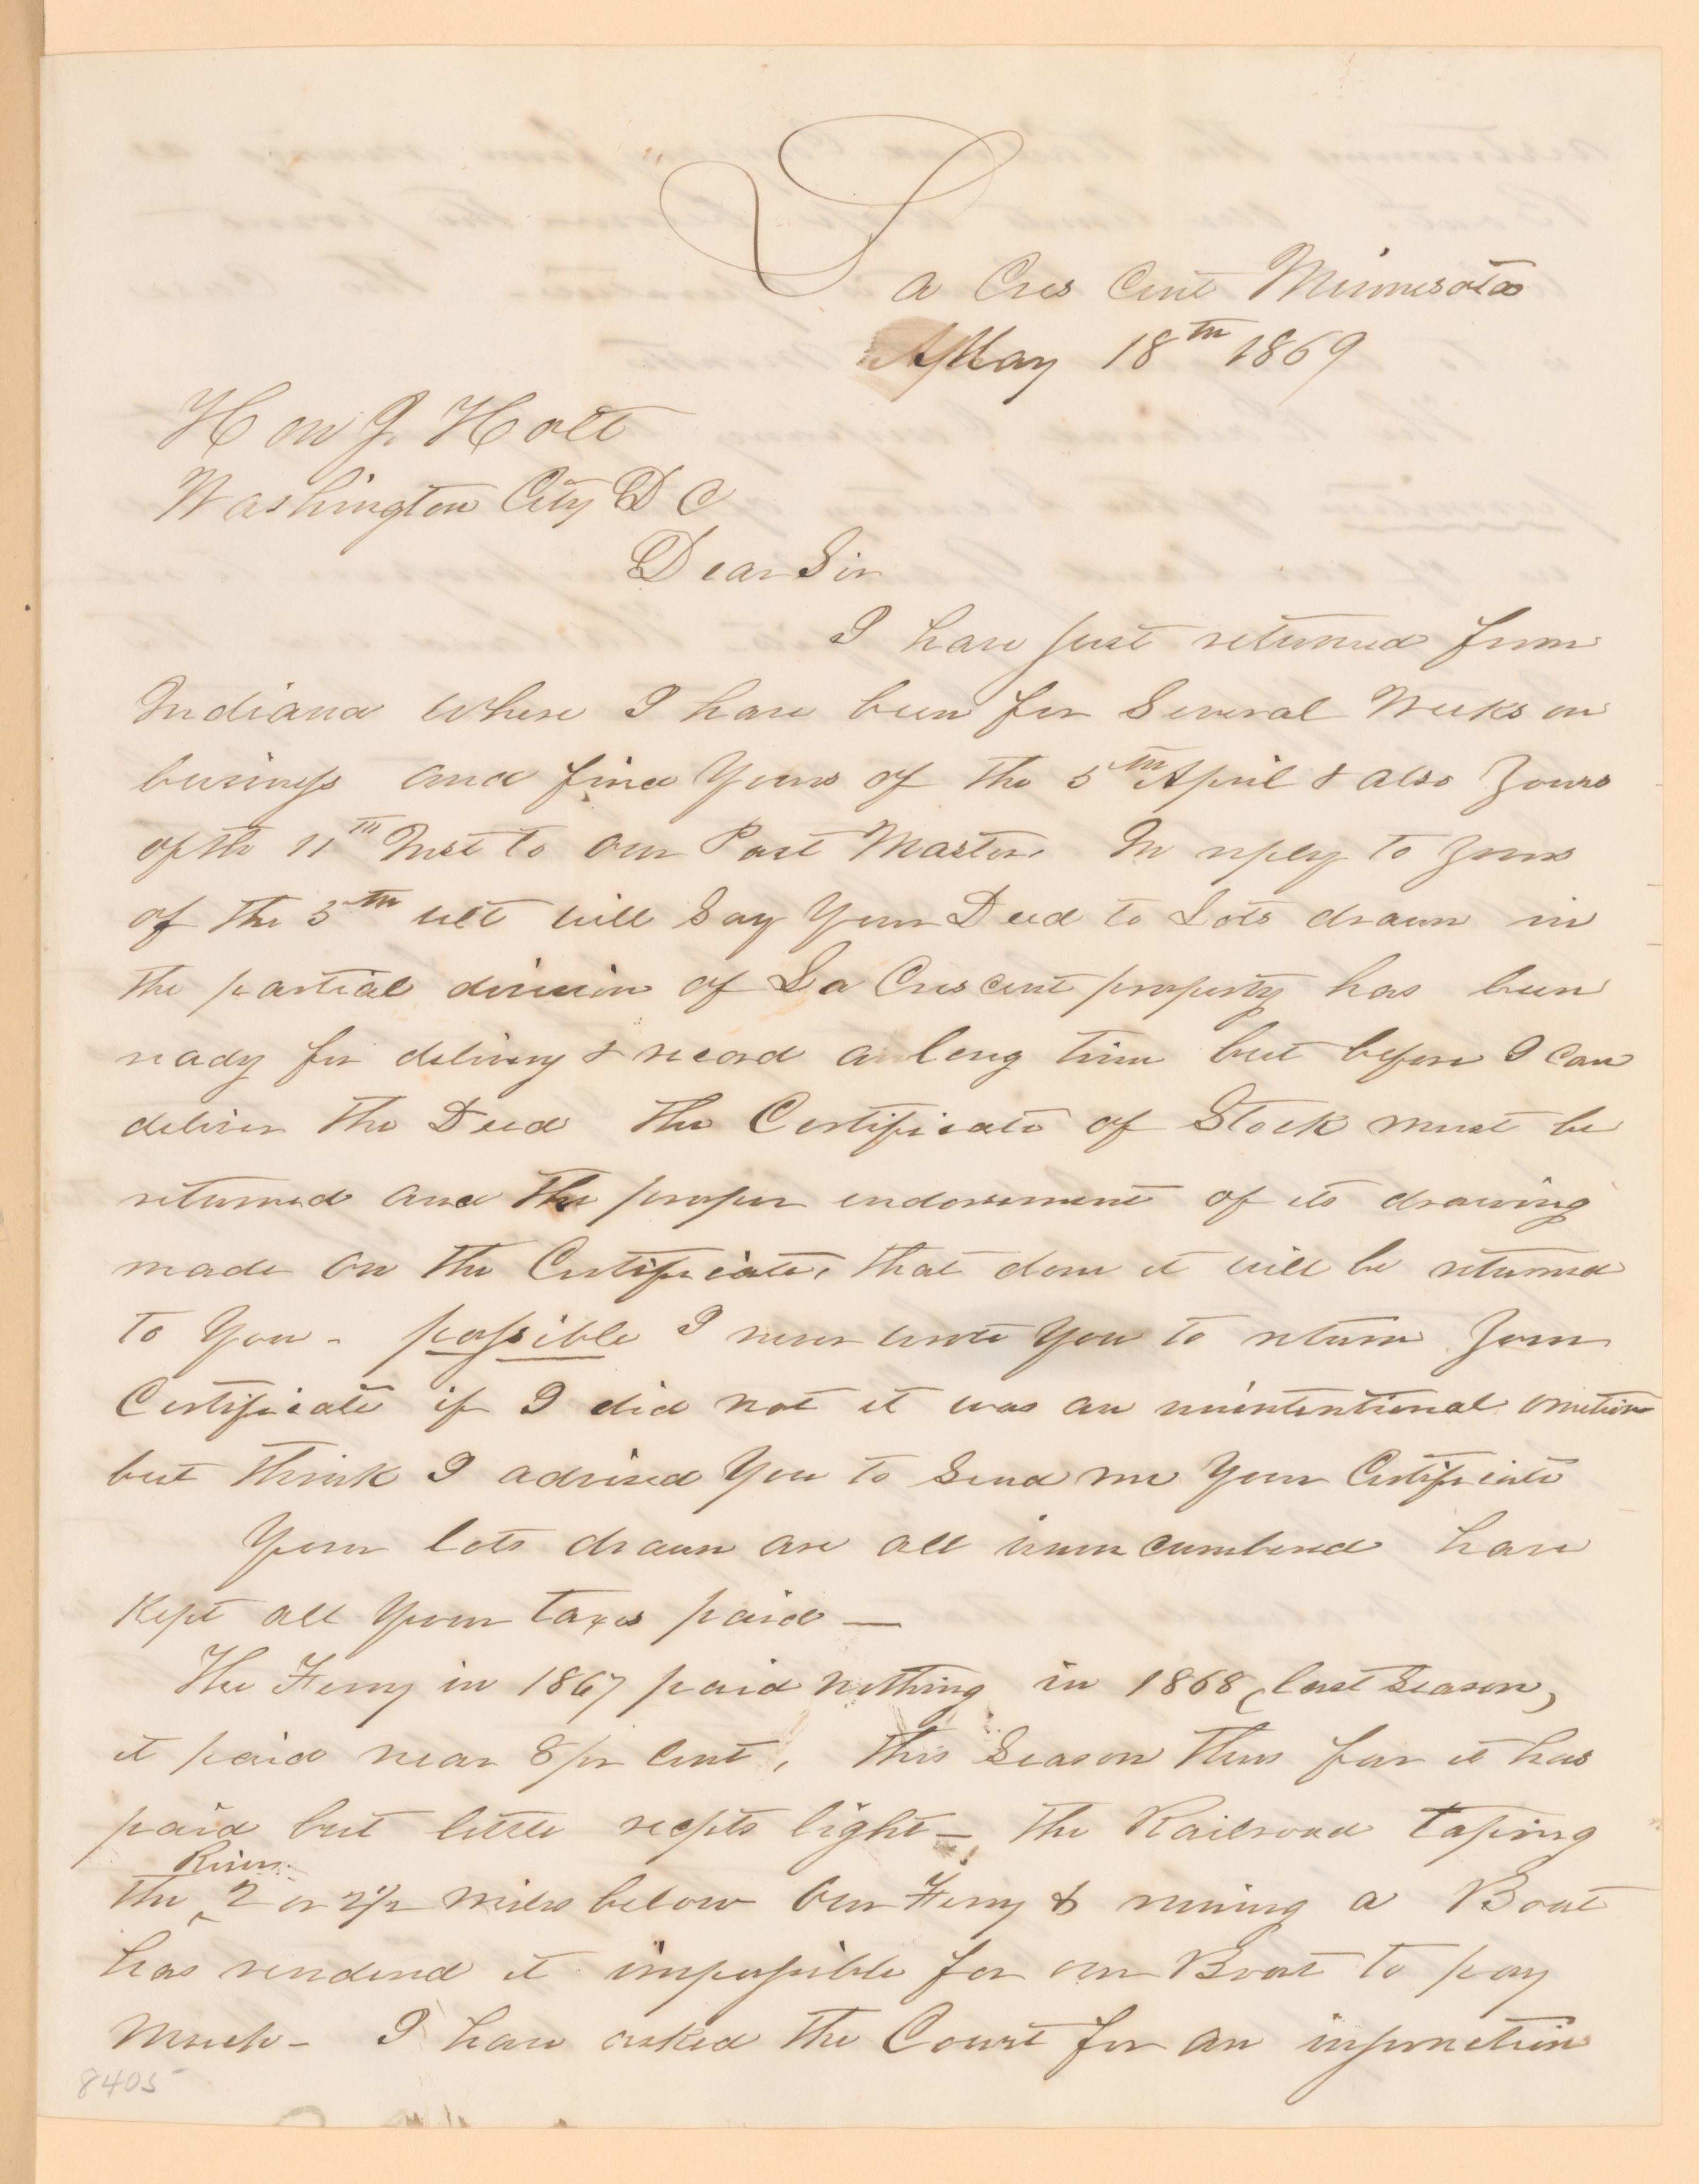 La Cres Cent Minnesota
May 18th 1869
Hon J. Holt
Washington City D C
Dear Sir
I have just returned from
Indiana where I have been for Several Weeks on
business and find Yours of the 5th April & also Yours
of the 11th Inst to our Post Master. In reply to Yours
of the 5th ult will Say Your Deed to Lots drawn in
the partial division of La Crescent property has been
ready for delivery & record a long time but before I Can
deliver the Deed the Certificate of Stock must be
returned and the proper endorsement of its drawing
made on the Certificate, that done it will be returned
to You - possible I never wrote You to return Your
Certificate if I did not it was an unintentional omition
but think I advised You to Send me Your Certificate
Your lots drawn are all unincumbered have
Kept all Your taxes paid —
The Ferry in 1867 paid nothing in 1868 (last Season)
it paid near 8 pr Cent, this Season thus far it has
paid but little recpts light — the Railroad taping
the River 2 or 2½ Miles below Our Ferry & runing a Boat
has renderd it impossible for our Boat to pay
Much - I have asked the Court for an injunction
8405